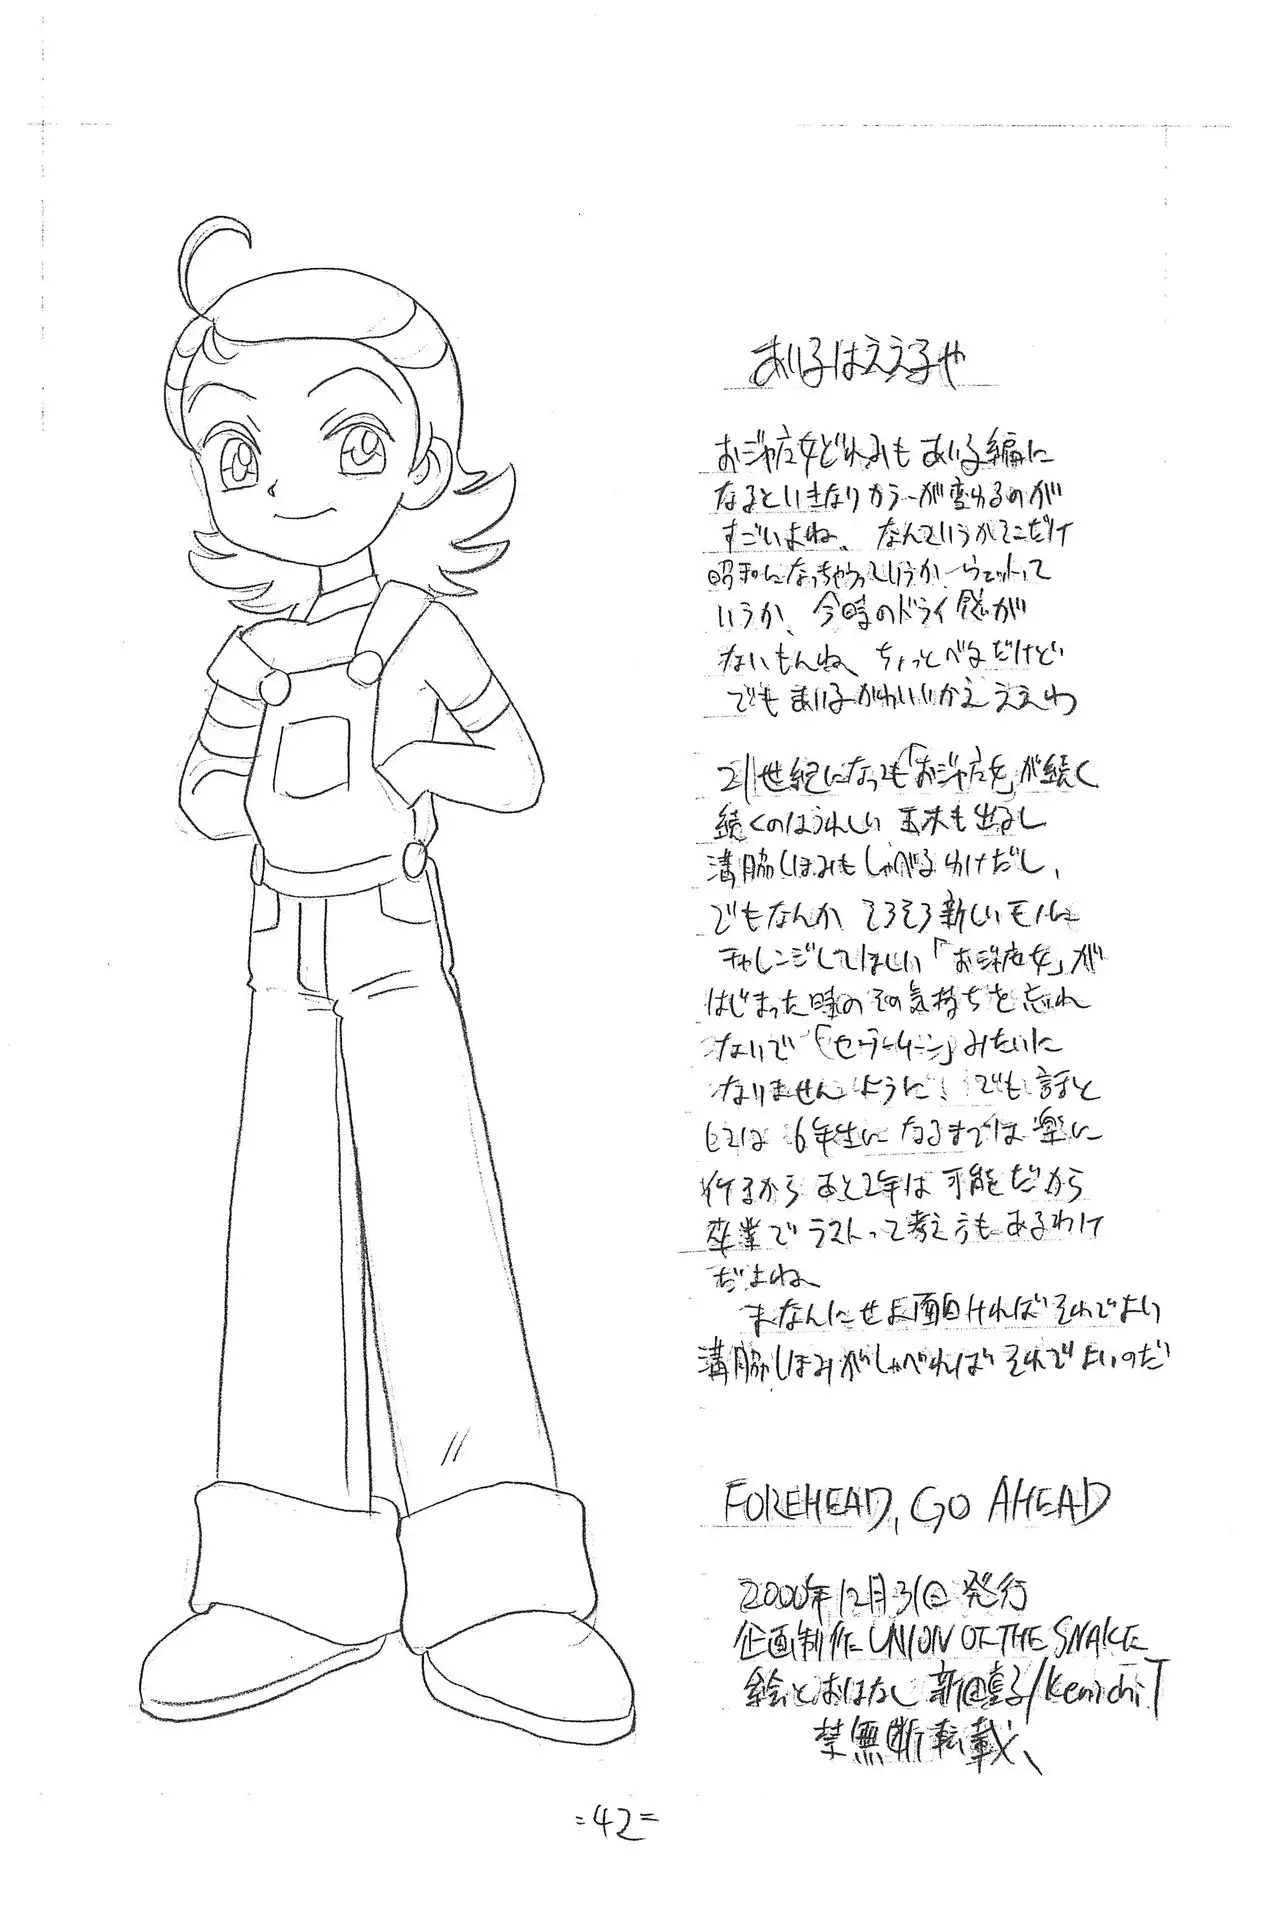 あい子はええ子や
おジャ魔女どれみもあい子編に
なるといきなりカラーが変わるのが
すごいよね、なんていうかそこだけ
昭和になっちゃうっていうか、ウェットって
いうか、今時のドライ感が
ないもんね、ちょっとベタだけど
でもあい子がかわいいからええわ
21世紀になっても「おジャ魔女」が続く
続くのはうれしい 玉木も出るし
溝脇しほみもしゃべるわけだし、
でもなんか そろそろ新しいモノに
チャレンジしてほしい「おジャ魔女」が
はじまった時のその気持ちを忘れ
ないで「セーラームーン」みたいに
なりませんように、でも話と
しては 6年生になるまでは楽に
行るから あと2年は可能だから
卒業でラストって考え方もあるわけ
だよね
まなんにせよ面白ければそれでよい
溝脇しほみがしゃべればそれでよいのだ
FOREHEAD, GO AHEAD
2000年12月31日発行
企画制作 UNION OF THE SNAKE
絵とおはなし 新田真子/Kenichi T
禁無断転載、
=42=